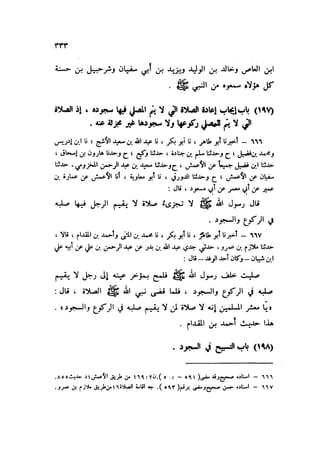 ٣٣٣
ابن العاص وخالد بن الوليد ويزيد بن أبي سفيان وشرحبيل بن حسنة
كل هؤلاء سمعوه من النبي ﷺ .
(١٩٧) باب إيجاب إعادة الصلاة التي لا يتم المصلي فيها سجوده ، إذ الصلاة
التي لا يتم المصلي ركوعها ولا سجودها غير مجزئة عنه .
٦٦٦ – أخبرنا أبو طاهر ، نا أبو بكر ، نا عبد الله بن سعيد الأشج ؛ نا ابن إدريس
ومحمد بن فضيل ؛ ح وحدثنا هارون بن إسحاق ،
حدثنا ابن فضيل جميعاً عن الأعمش ، ح وحدثنا سعيد بن عبد الرحمن المخزومي ، حدثنا
سفيان عن الأعمش ؛ ح وحدثنا الدورقي ، نا أبو معاوية ، نا الأعمش عن عمارة بن
عمير عن أبي معمر عن أبي مسعود ، قال :
قال رسول الله ﷺ لا تجزىء صلاة لا يقيم الرجل فيها صلبه
في الركوع والسجود .
٦٦٧ – أخبرنا أبو طاهر ، نا أبو بكر ، نا محمد بن المثنى وأحمد بن المقدام ، قالا ،
حدثنا ملازم بن عمرو ، حدثني جدي عبد الله بن بدر عن عبد الرحمن بن علي بن شيبان عن أبيه علي
ابن شيبان – وكان أحد الوفد – قال :
صليت خلف رسول الله ﷺ فلمح بمؤخر عينه إلى رجل لا يقيم
صلبه في الركوع والسجود ، فلما قضى نبي الله ﷺ الصلاة ، قال :
« يا معشر المسلمين إنه لا صلاة لمن لا يقيم صلبه في الركوع والسجود » .
هذا حديث أحمد بن المقدام .
(١٩٨) باب التسبيح في السجود .
٦٦٦ – اسناده صحيح وقد مضى (
٦٦٧ – اسناده حسن صحيح ومضى برقم ( ٥٩٣ ) جه اقامة الصلاة ١٦ من طريق ملازم بن عمرو .